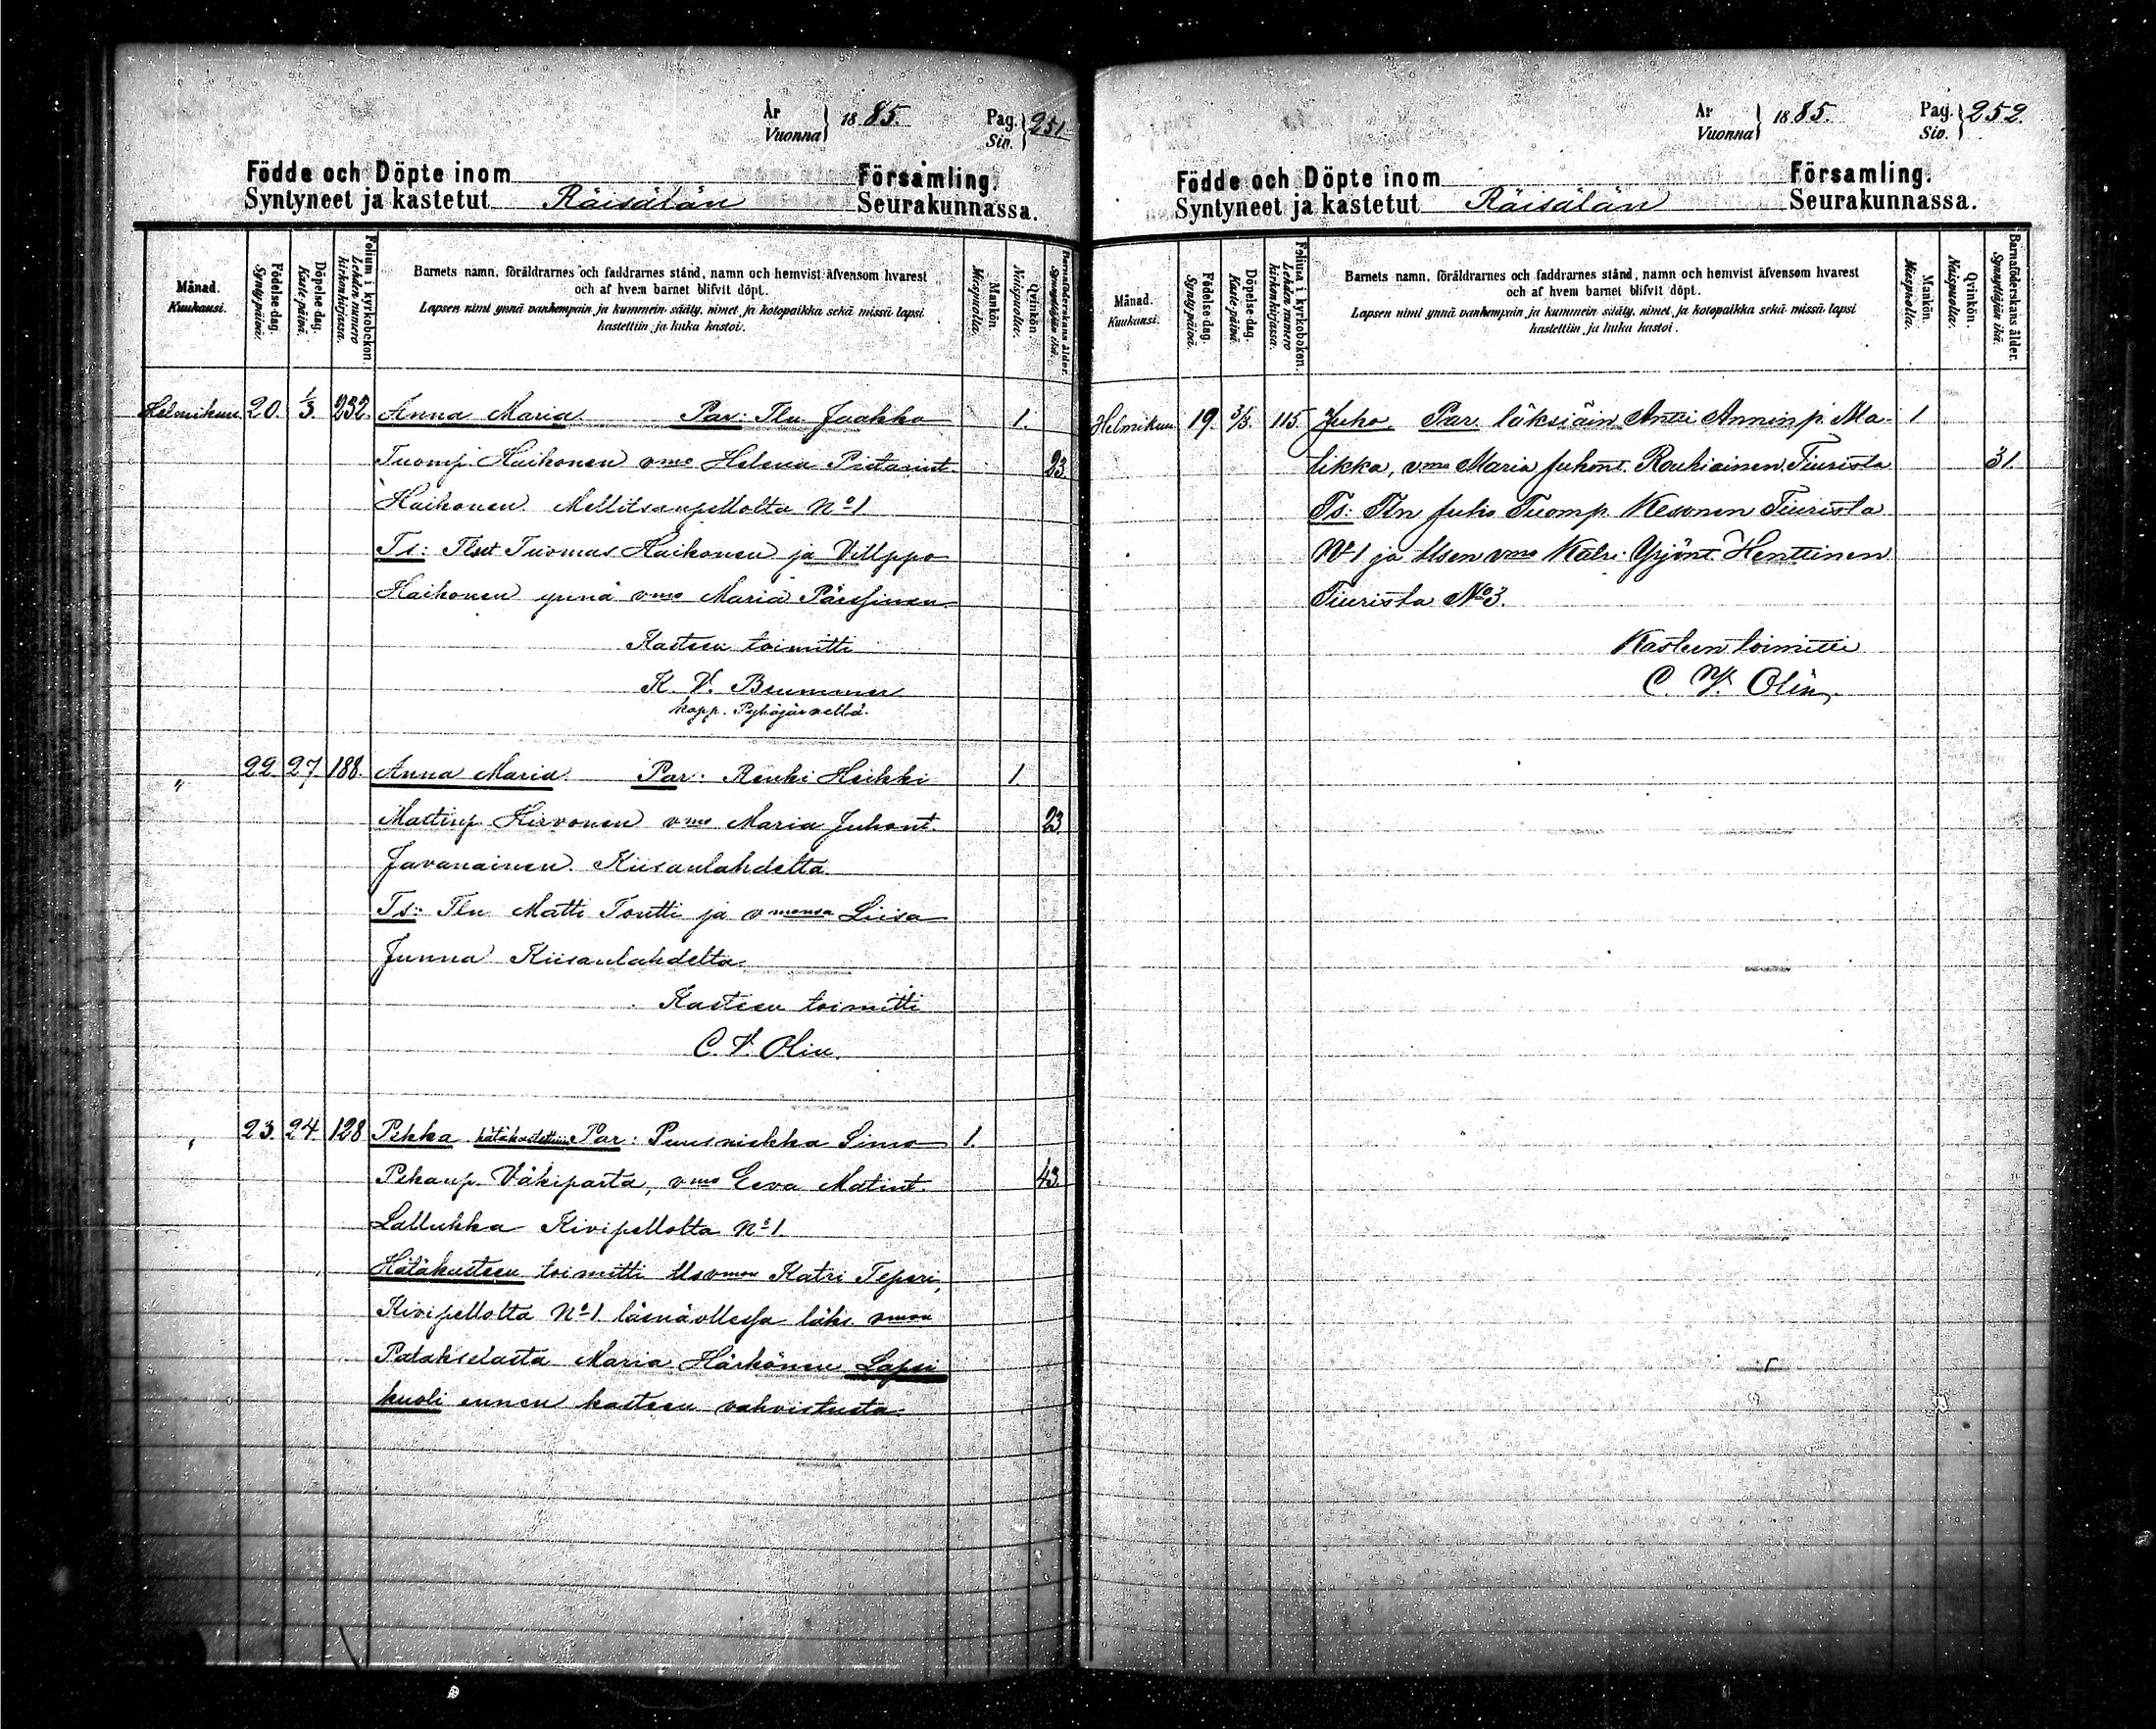 År
Vuonna } 1885.
Pag.
Siv. } 251.
Födde och Döpte inom Församling.
Syntyneet ja kastetut Räisälän Seurakunnassa.
Månad.
Kuukausi.
Födelse-dag.
Syntypäivä.
Döpelse-dag.
Kaste-päivä.
Folium i kyrkoboken.
Lehden numero
kirkonkirjassa.
Barnets namn, föräldrarnes och faddrarnes stånd, namn och hemvist äfvensom hvarest
och af hvem barnet blifvit döpt.
Lapsen nimi ynnä vanhempain ja kummein sääty, nimet ja kotopaikka sekä missä lapsi
kastettiin ja kuka kastoi.
Mankön.
Miespuolia.
Qvinkön.
Naispuolia.
Barnaföderskans ålder.
Synnyttäjän ikä.
Helmikuu 20. 1/3. 232. Anna Maria Par: Tln Jaakko 1.
Tuomp. Haikonen vmo Helena Pietarint. 23.
Haikonen Mellitsanpellolta No 1
Ts: Tlset Tuomas Haikonen ja Vilppo
Haikonen ynnä vmo Maria Pärssinen
Kasteen toimitti
K. V. Brummer
kapp. Pyhäjärvellä.
" 22. 27 188. Anna Maria Par: Renki Heikki 1.
Mattinp. Hirvonen vmo Maria Juhont. 23
Javanainen. Kiisanlahdelta.
Ts: Tln Matti Tontti ja vmonsa Liisa
Junna Kiisanlahdelta.
Kasteen toimitti
C. V. Olin.
" 23. 24. 128 Pekka hätäkastettuna Par: Puusniekka Simo 1.
Pekanp. Väkiparta, vmo Eeva Matint. 43.
Lallukka Kivipellolta No 1.
Hätäkasteen toimitti Usvmon Katri Teperi,
Kivipellolta No 1 läsnäollessa läks. vmon
Patakselasta Maria Härkönen Lapsi
kuoli ennen kasteen vahvistusta.
År
Vuonna } 1885.
Pag.
Siv. } 252.
Födde och Döpte inom Församling.
Syntyneet ja kastetut Räisälän Seurakunnassa.
Månad.
Kuukausi.
Födelse-dag.
Syntypäivä.
Döpelse-dag.
Kaste-päivä.
Folium i kyrkoboken.
Lehden numero
kirkonkirjassa.
Barnets namn, föräldrarnes och faddrarnes stånd, namn och hemvist äfvensom hvarest
och af hvem barnet blifvit döpt.
Lapsen nimi ynnä vanhempain ja kummein sääty, nimet ja kotopaikka sekä missä lapsi
kastettiin ja kuka kastoi.
Mankön.
Miespuolia.
Qvinkön.
Naispuolia.
Barnaföderskans ålder.
Synnyttäjän ikä.
Helmikuu 19. 3/3. 115. Juho. Par. läksiäin Antti Anninp. Ma- 1
likka, vmo Maria Juhont. Rouhiainen Tiurista 31.
Ts: Tln Juho Tuomp. Kesonen Tiurista
No 1 ja Usen vmo Katri Yrjönt. Henttinen
Tiurista No 3.
Kasteen toimitti
C. W. Olin.